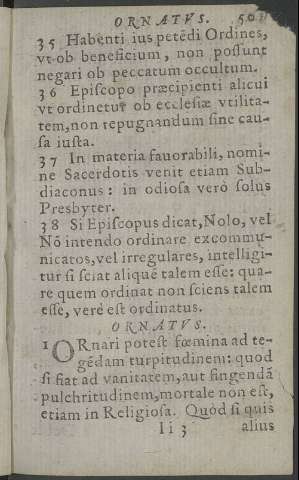 ORNATVS. 501
35 Habenti ius petēdi Ordines,
vt ob beneficium, non possunt
negari ob peccatum occultum.
36 Episcopo præcipienti alicui
vt ordinetur ob ecclesiæ vtilita-
tem, non repugnandum sine cau-
sa iusta.
37 In materia fauorabili, nomi-
ne Sacerdotis venit etiam Sub-
diaconus: in odiosa verò solus
Presbyter.
38 Si Episcopus dicat, Nolo, vel
Nō intendo ordinare excommu-
nicatos, vel irregulares, intelligi-
tur si sciat aliquē talem esse: qua-
re quem ordinat non sciens talem
esse, verè est ordinatus.
ORNATVS.
1 ORnari potest fœmina ad te-
gēdam turpitudinem: quod
si fiat ad vanitatem, aut fingendā
pulchritudinem, mortale non est,
etiam in Religiosa. Quòd si quis
Ii 3 alius